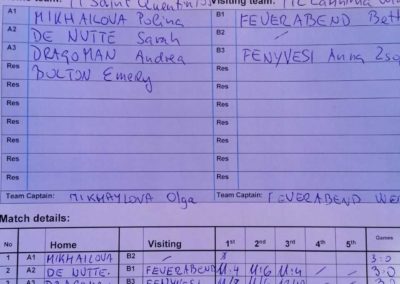 Saint Quentin Visiting team:
A1 MIKHAILOVA Polina B1 FEUERABEND Bett
A2 DE NUTTE Sarah B2 /
A3 DRAGOMAN Andrea B3 FENYVESI Anna Zso
Res BOLTON Emery Res
Res Res
Res Res
Res Res
Res Res
Res Res
Team Captain: MIKHAYLOVA Olga Team Captain: FEUERABEND WE
Match details:
No Home Visiting 1st 2nd 3rd 4th 5th Games
1 A1 MIKHAILOVA B2 / 3:0
2 A2 DE NUTTE. B1 FEUERABEND 11:4 11:6 11:4 / / 3:0
3 A3 B3 FENYVESI